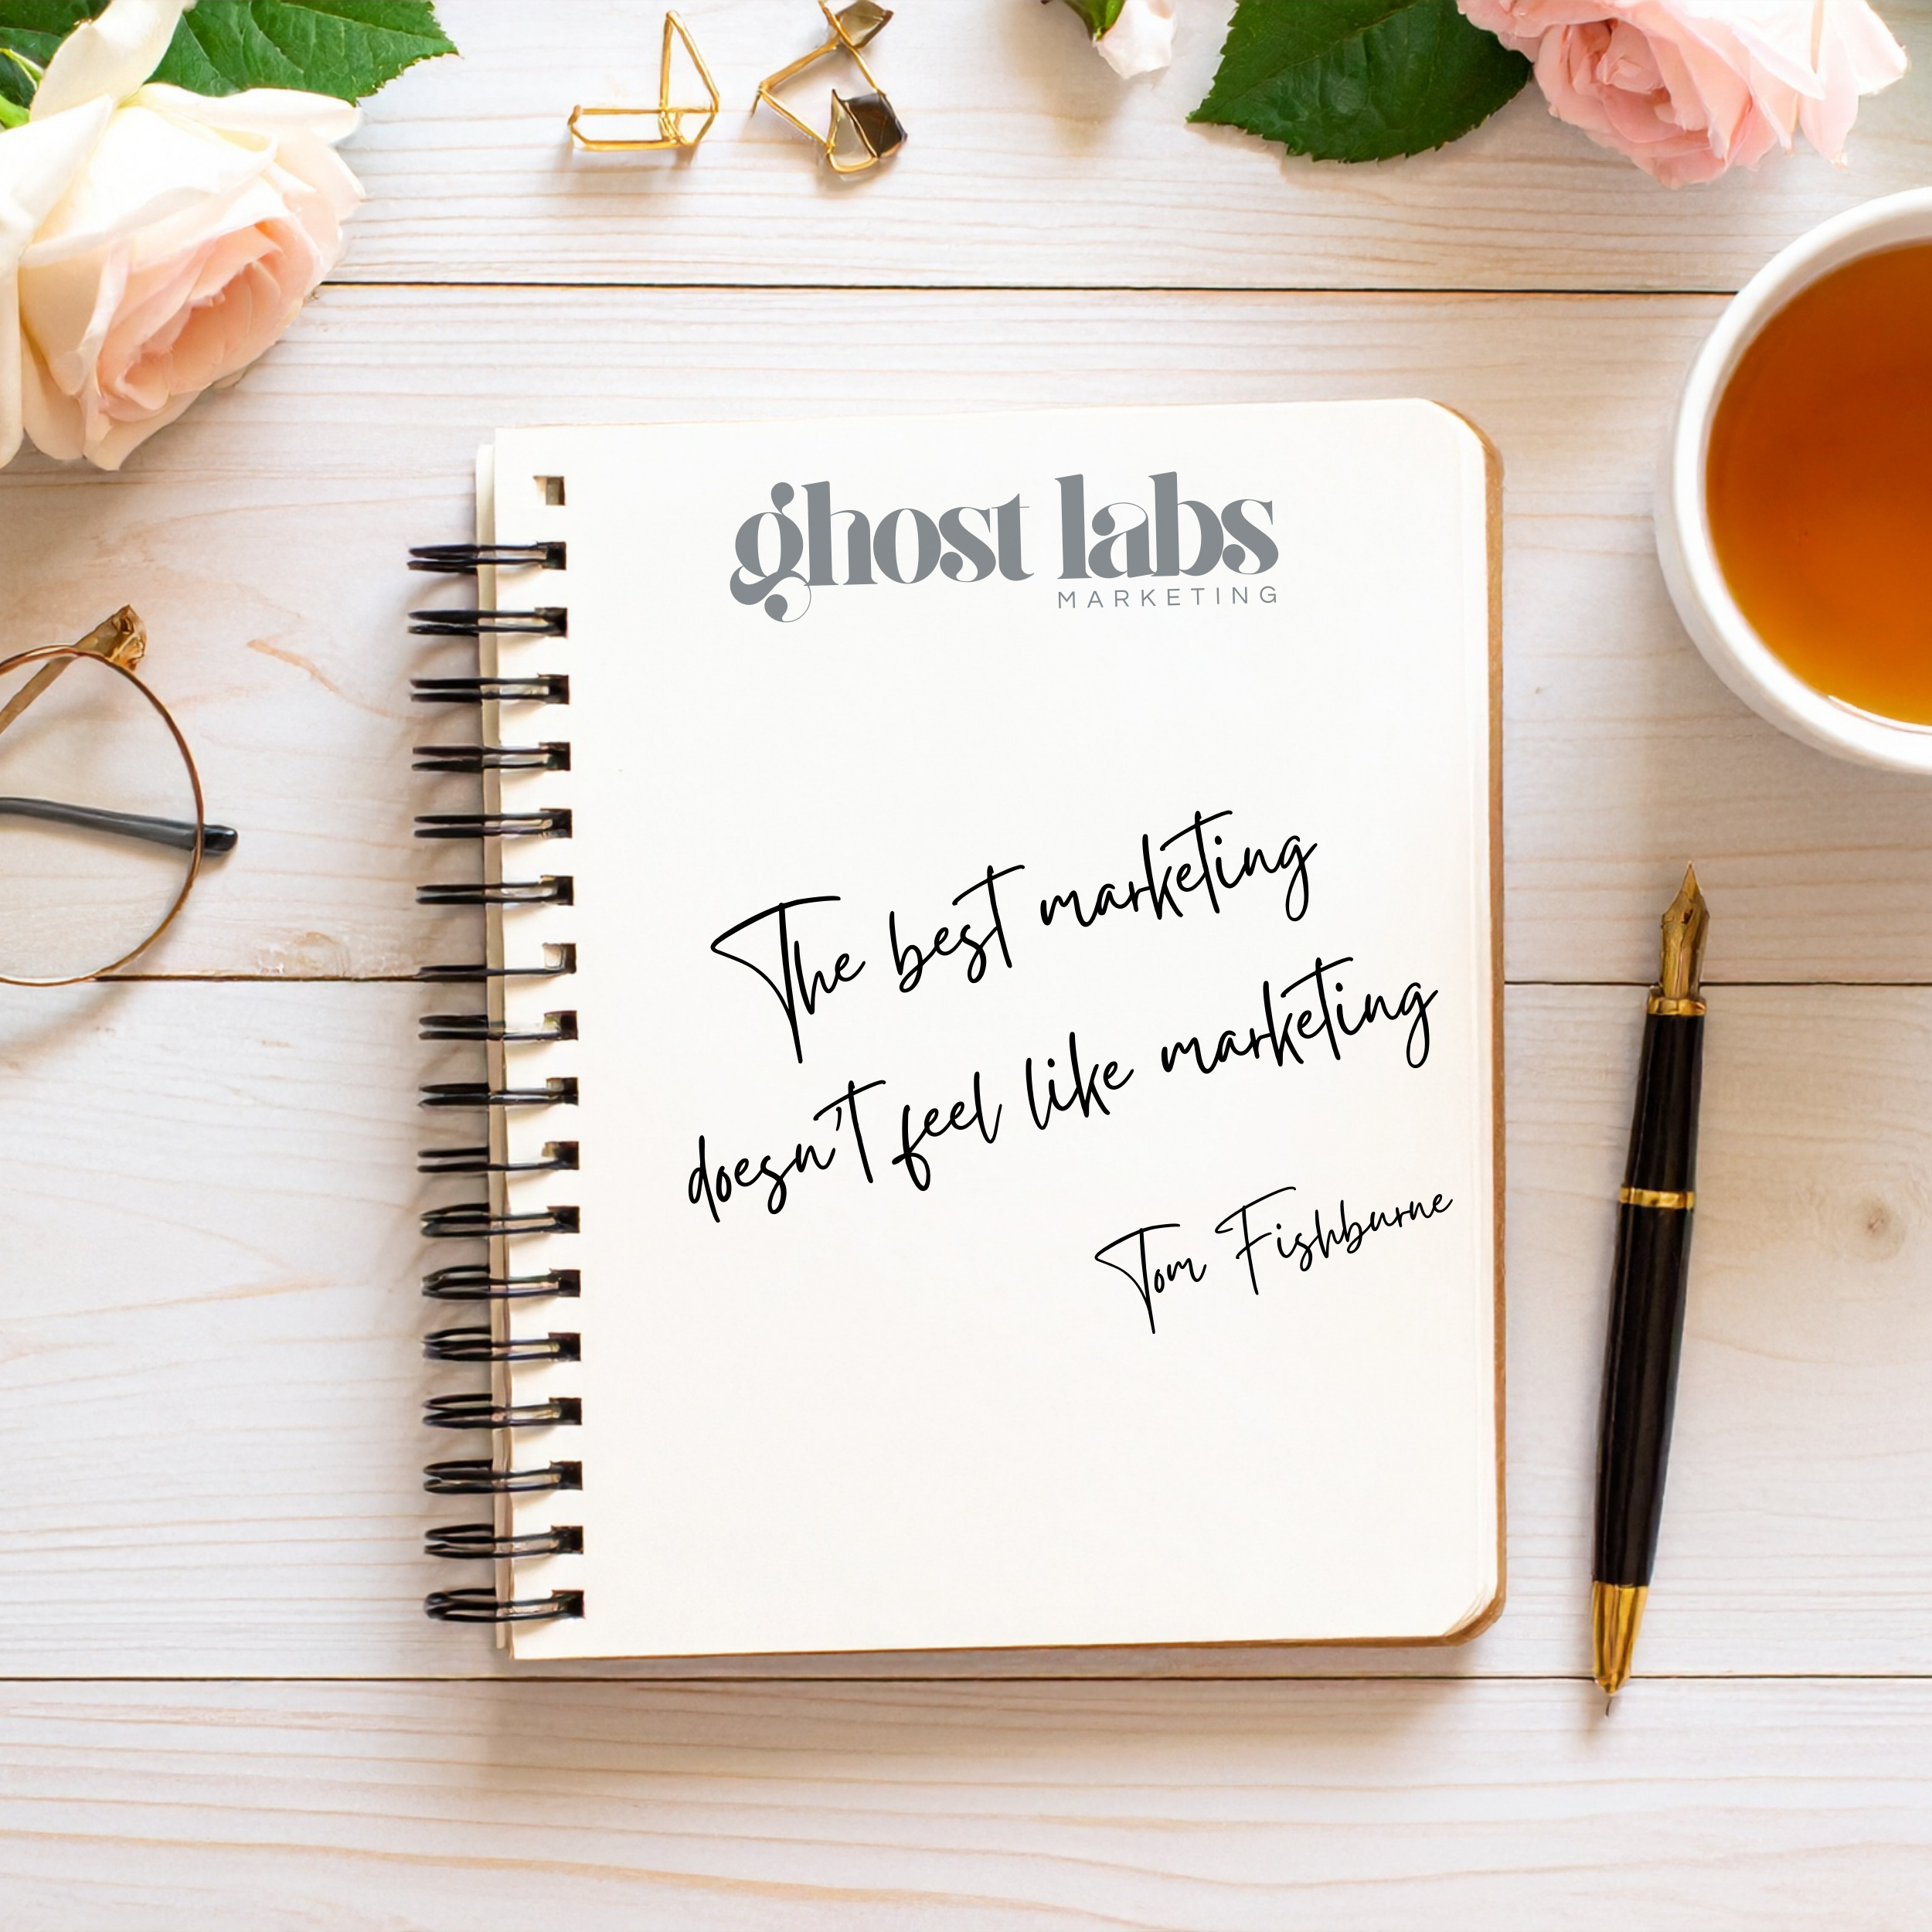 ghost labs
MARKETING
The best marketing
doesn't feel like marketing
Tom Fishburne